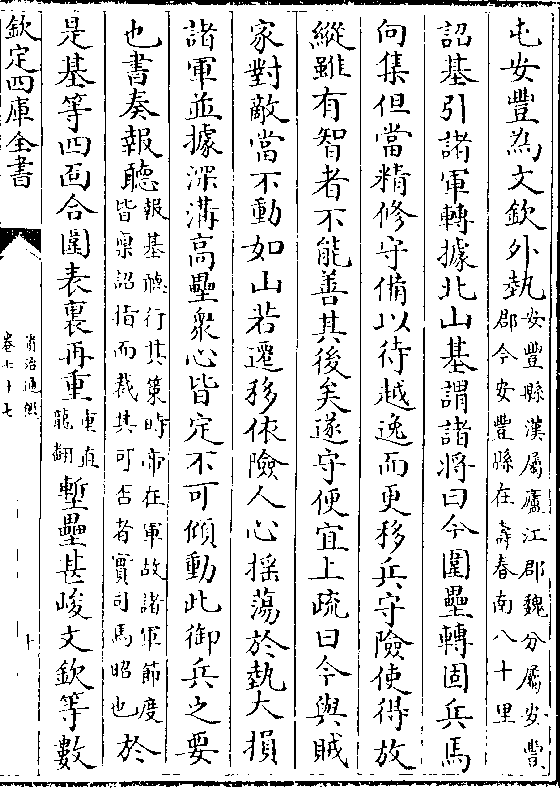 屯安豐為文欽外埶安豐縣漢屬廬江郡魏分屬安豐
郡今安豐縣在壽春南八十里
詔基引諸軍轉據北山基謂諸將曰今圍壘轉固兵馬
向集但當精修守備以待越逸而更移兵守險使得放
縱雖有智者不能善其後矣遂守便宜上疏曰今與賊
家對敵當不動如山若遷移依險人心揺蕩於埶大損
諸軍並據深溝高壘衆心皆定不可傾動此御兵之要
也書奏報聽報基聽行其策時帝在軍故諸軍節度
皆禀詔指而裁其可否者實司馬昭也於
是基等四靣合圍表裏再重重直
龍翻塹壘甚峻文欽等數
欽定四庫全書
資治通鑑
卷七十七
十